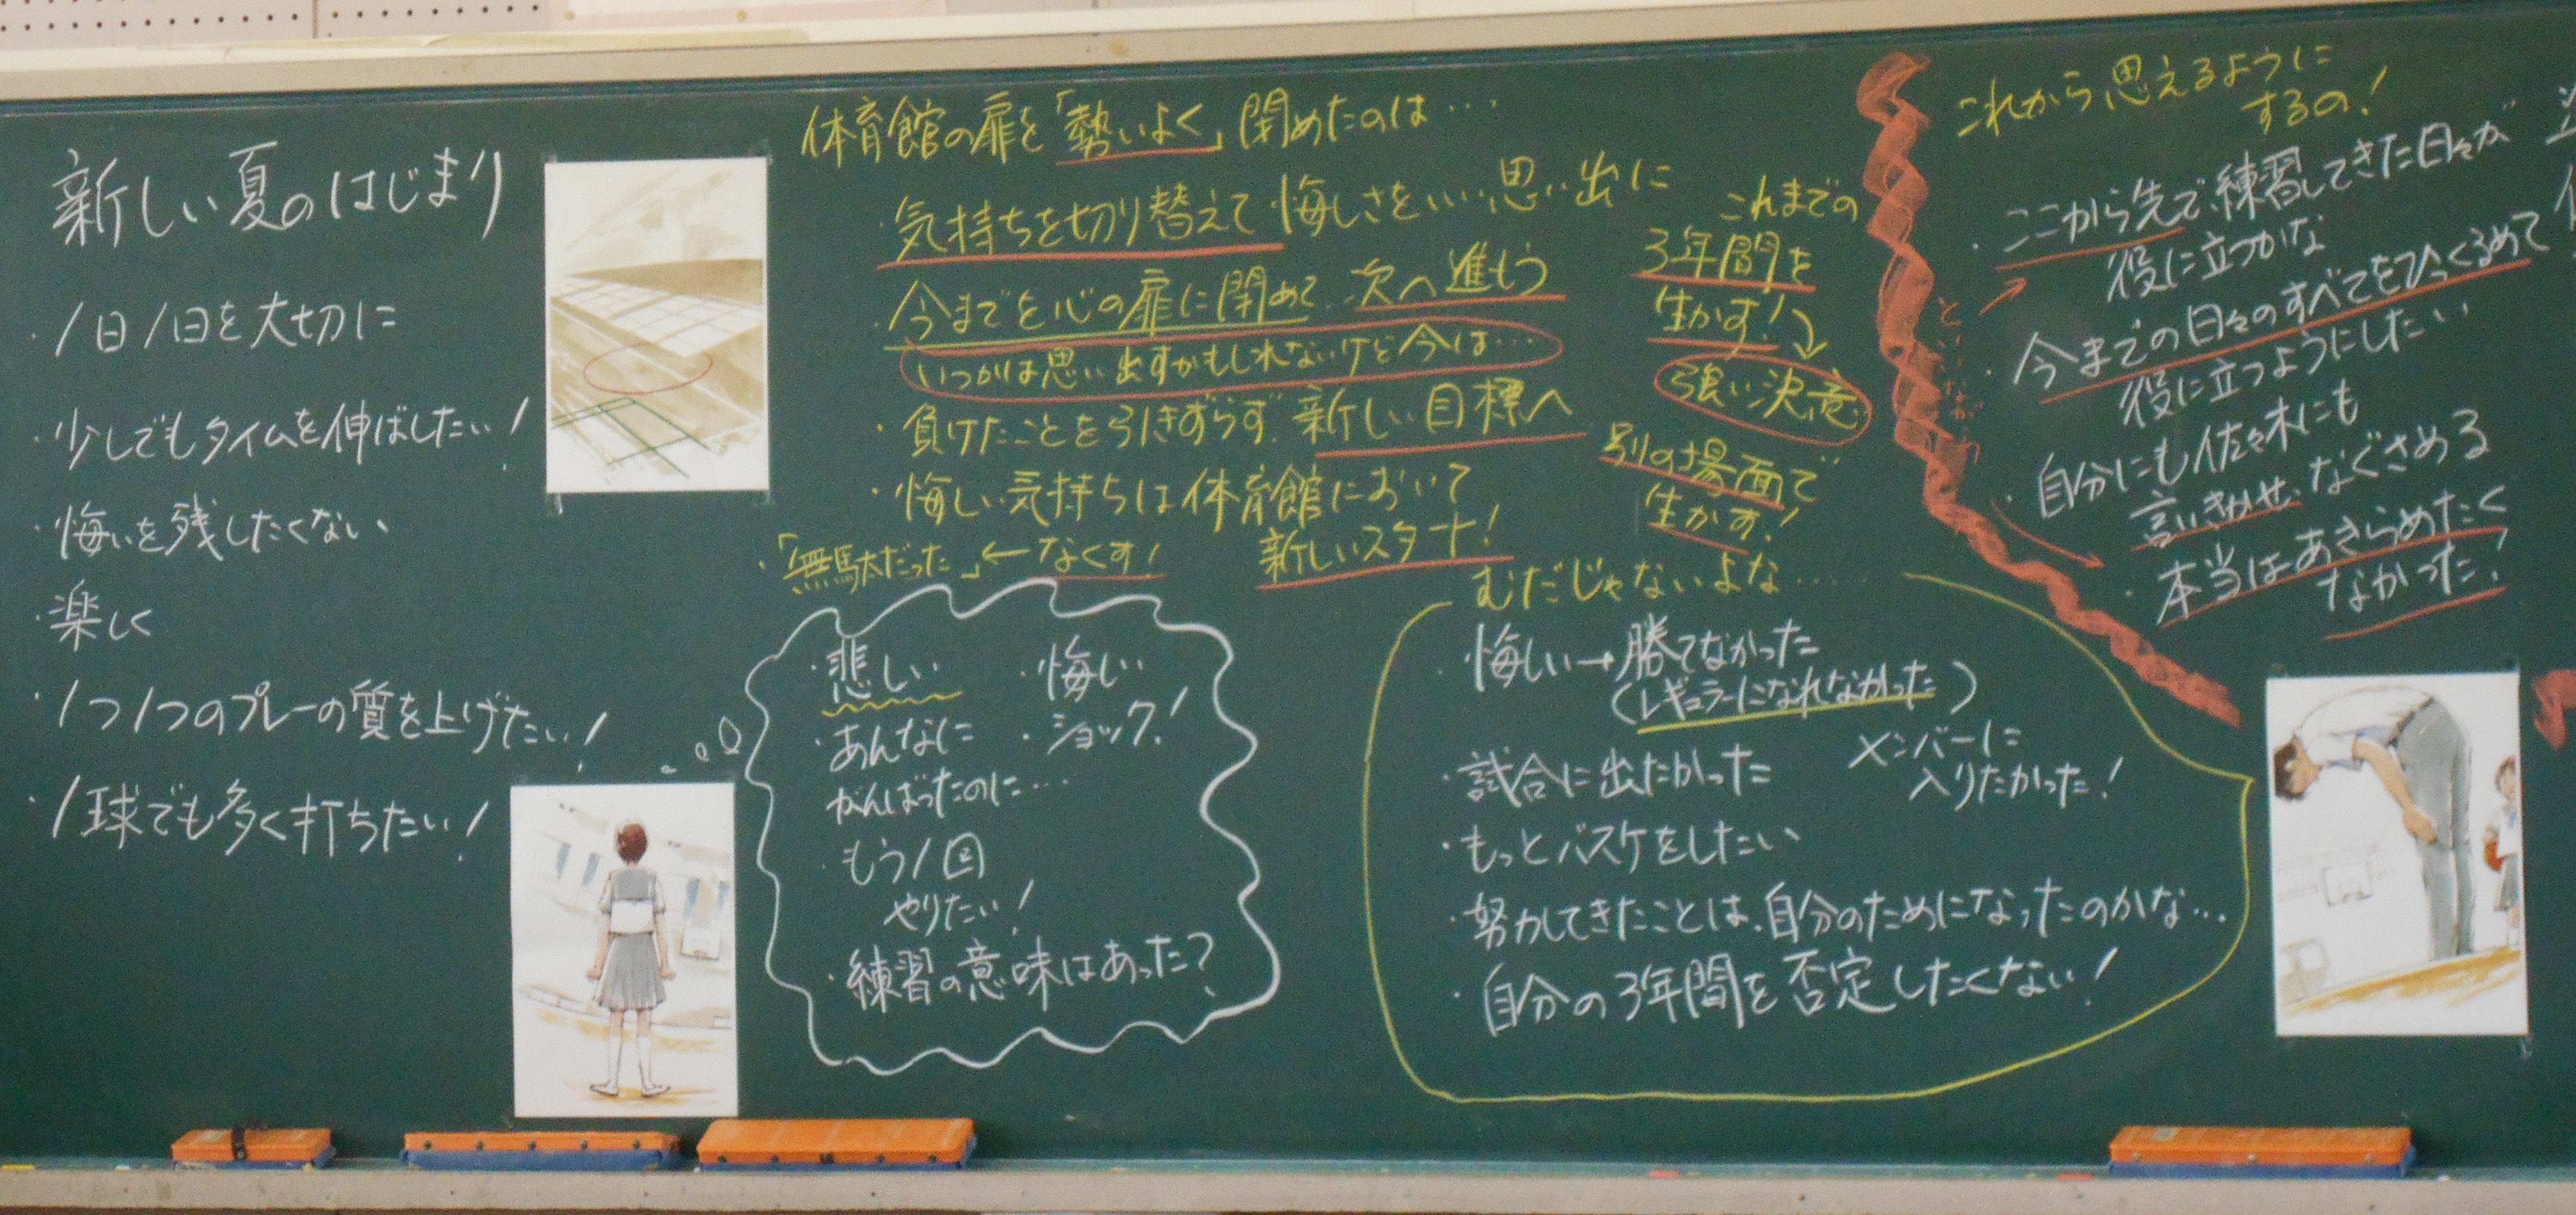 これから思えるように
するの!
・ここから先で、練習してきた日々が
役に立つかな
・今までの日々のすべてをひっくるめて
役に立つようにしたい
・自分にも佐々木にも
言いきかせ、なぐさめる
・本当はあきらめたく
なかった!
体育館の扉を「勢いよく」閉めたのは…
・気持ちを切り替えて 悔しさをいい思い出に
・今までを心の扉に閉めて 次へ進もう
いつかは思い出すかもしれないけど今は…
・負けたことを引きずらず、新しい目標へ
・悔しい気持ちは体育館において
新しいスタート!
・「無駄だった」←なくす!
これまでの
3年間を
生かす!
強い決意
別の場面で
生かす!
むだじゃないよな……
・悔しい→勝てなかった
(レギュラーになれなかった)
・試合に出たかった
メンバーに
入りたかった!
・もっとバスケをしたい
・努力してきたことは、自分のためになったのかな…
・自分の3年間を否定したくない!
・悲しい
・悔しい
・あんなに
がんばったのに…
・ショック!
・もう1回
やりたい!
・練習の意味はあった?
新しい夏のはじまり
・1日1日を大切に
・少しでもタイムを伸ばしたい!
・悔いを残したくない
・楽しく
・1つ1つのプレーの質を上げたい!
・1球でも多く打ちたい!